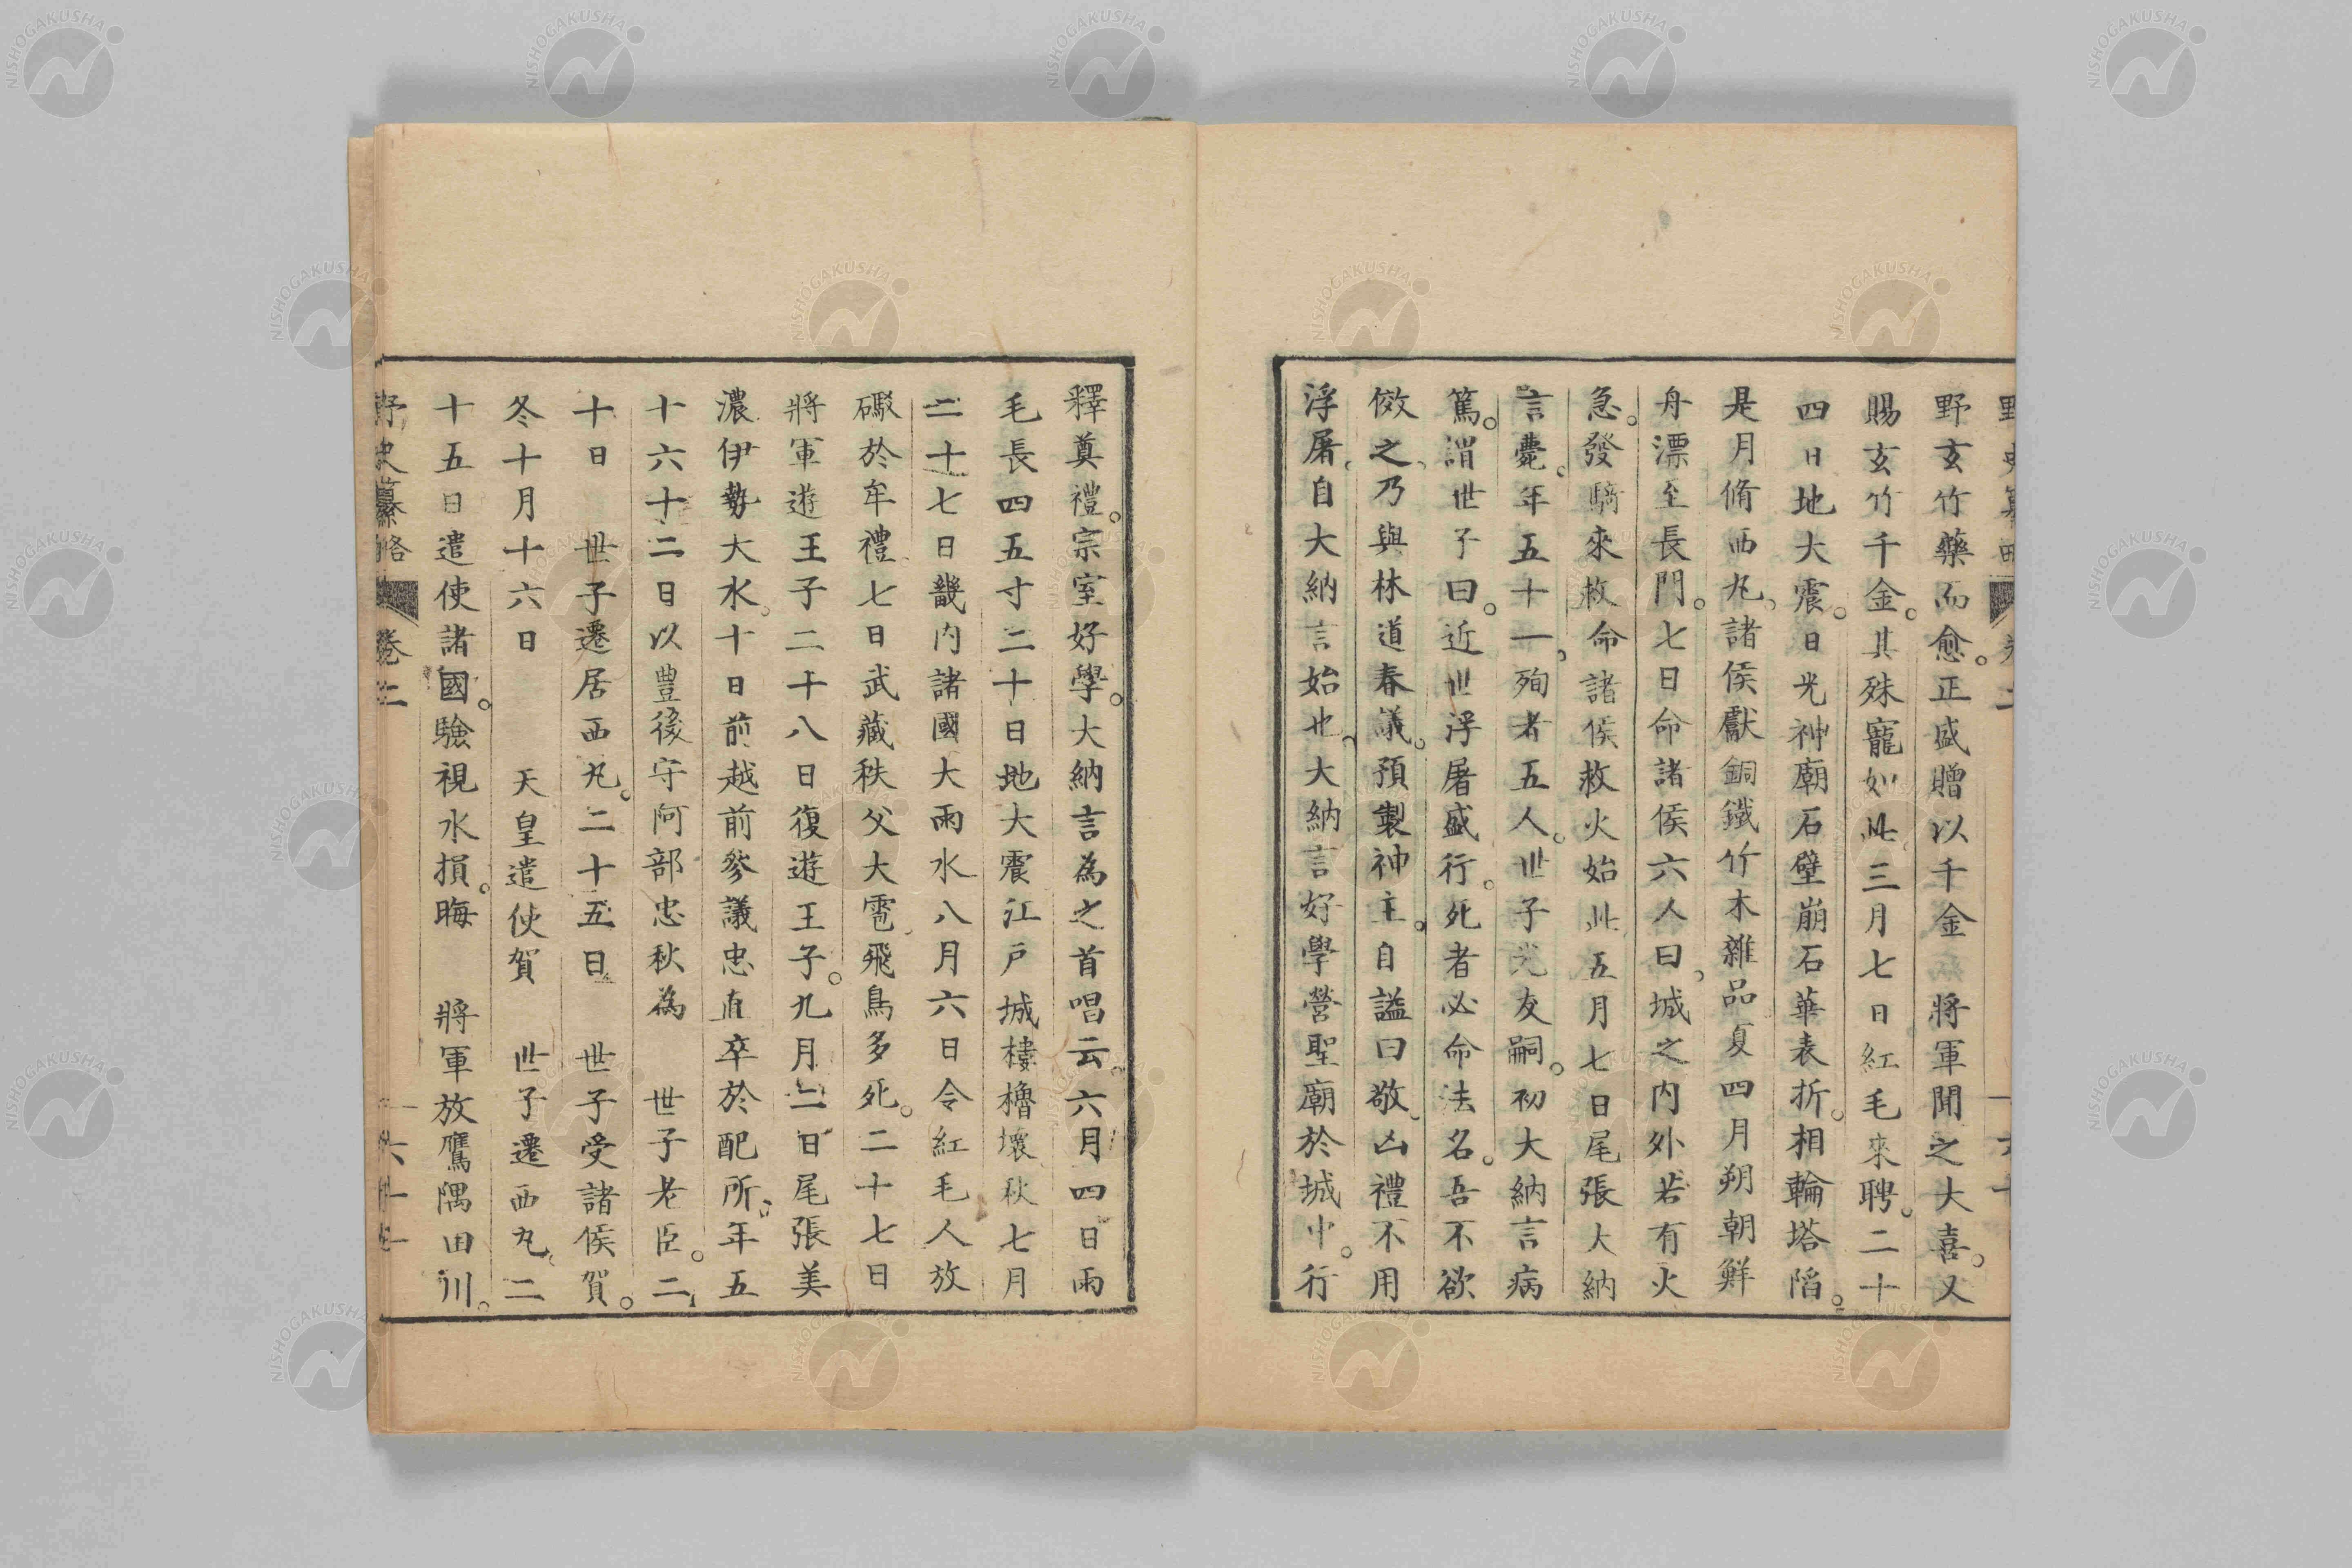 野玄竹藥而愈。正盛贈以千金　將軍聞之大喜。又
賜玄竹千金。其殊寵如此三月七日紅毛來聘。二十
四日地大震。日光神廟石壁崩石華表折。相輪塔陷。
是月脩西丸。諸侯獻銅鐵竹木雜品夏四月朔朝鮮
舟漂至長門。七日命諸侯六人曰、城之内外若有火
急。發騎來救命諸侯救火始此五月七日尾張大納
言薨。年五十一、殉者五人。世子光友嗣。初大納言病
篤。謂世子曰。近世浮屠盛行。死者必命法名。吾不欲
傚之、乃與林道春議。預製神主。自謚曰敬、凶禮不用
浮屠。自大納言始也、大納言好學營聖廟於城中。行
釋奠禮。宗室好學。大納言為之首唱云。六月四日雨
毛長四五寸二十日地大震江戶城樓櫓壞秋七月
二十七日畿内諸國大雨水八月六日令紅毛人放
礟於牟禮七日武藏秩父大雹飛鳥多死。二十七日
將軍遊王子二十八日復遊王子。九月二日尾張美
濃伊勢大水。十日前越前參議忠直卒於配所。年五
十六十二日以豊後守阿部忠秋為　世子老臣。二
十日　世子遷居西丸。二十五日　世子受諸侯賀。
冬十月十六日　天皇遣使賀　世子遷西丸、二
十五日遣使諸國。驗視水損。晦　將軍放鷹隅田川。
野史纂略　卷二
NISHOGAKUSHA